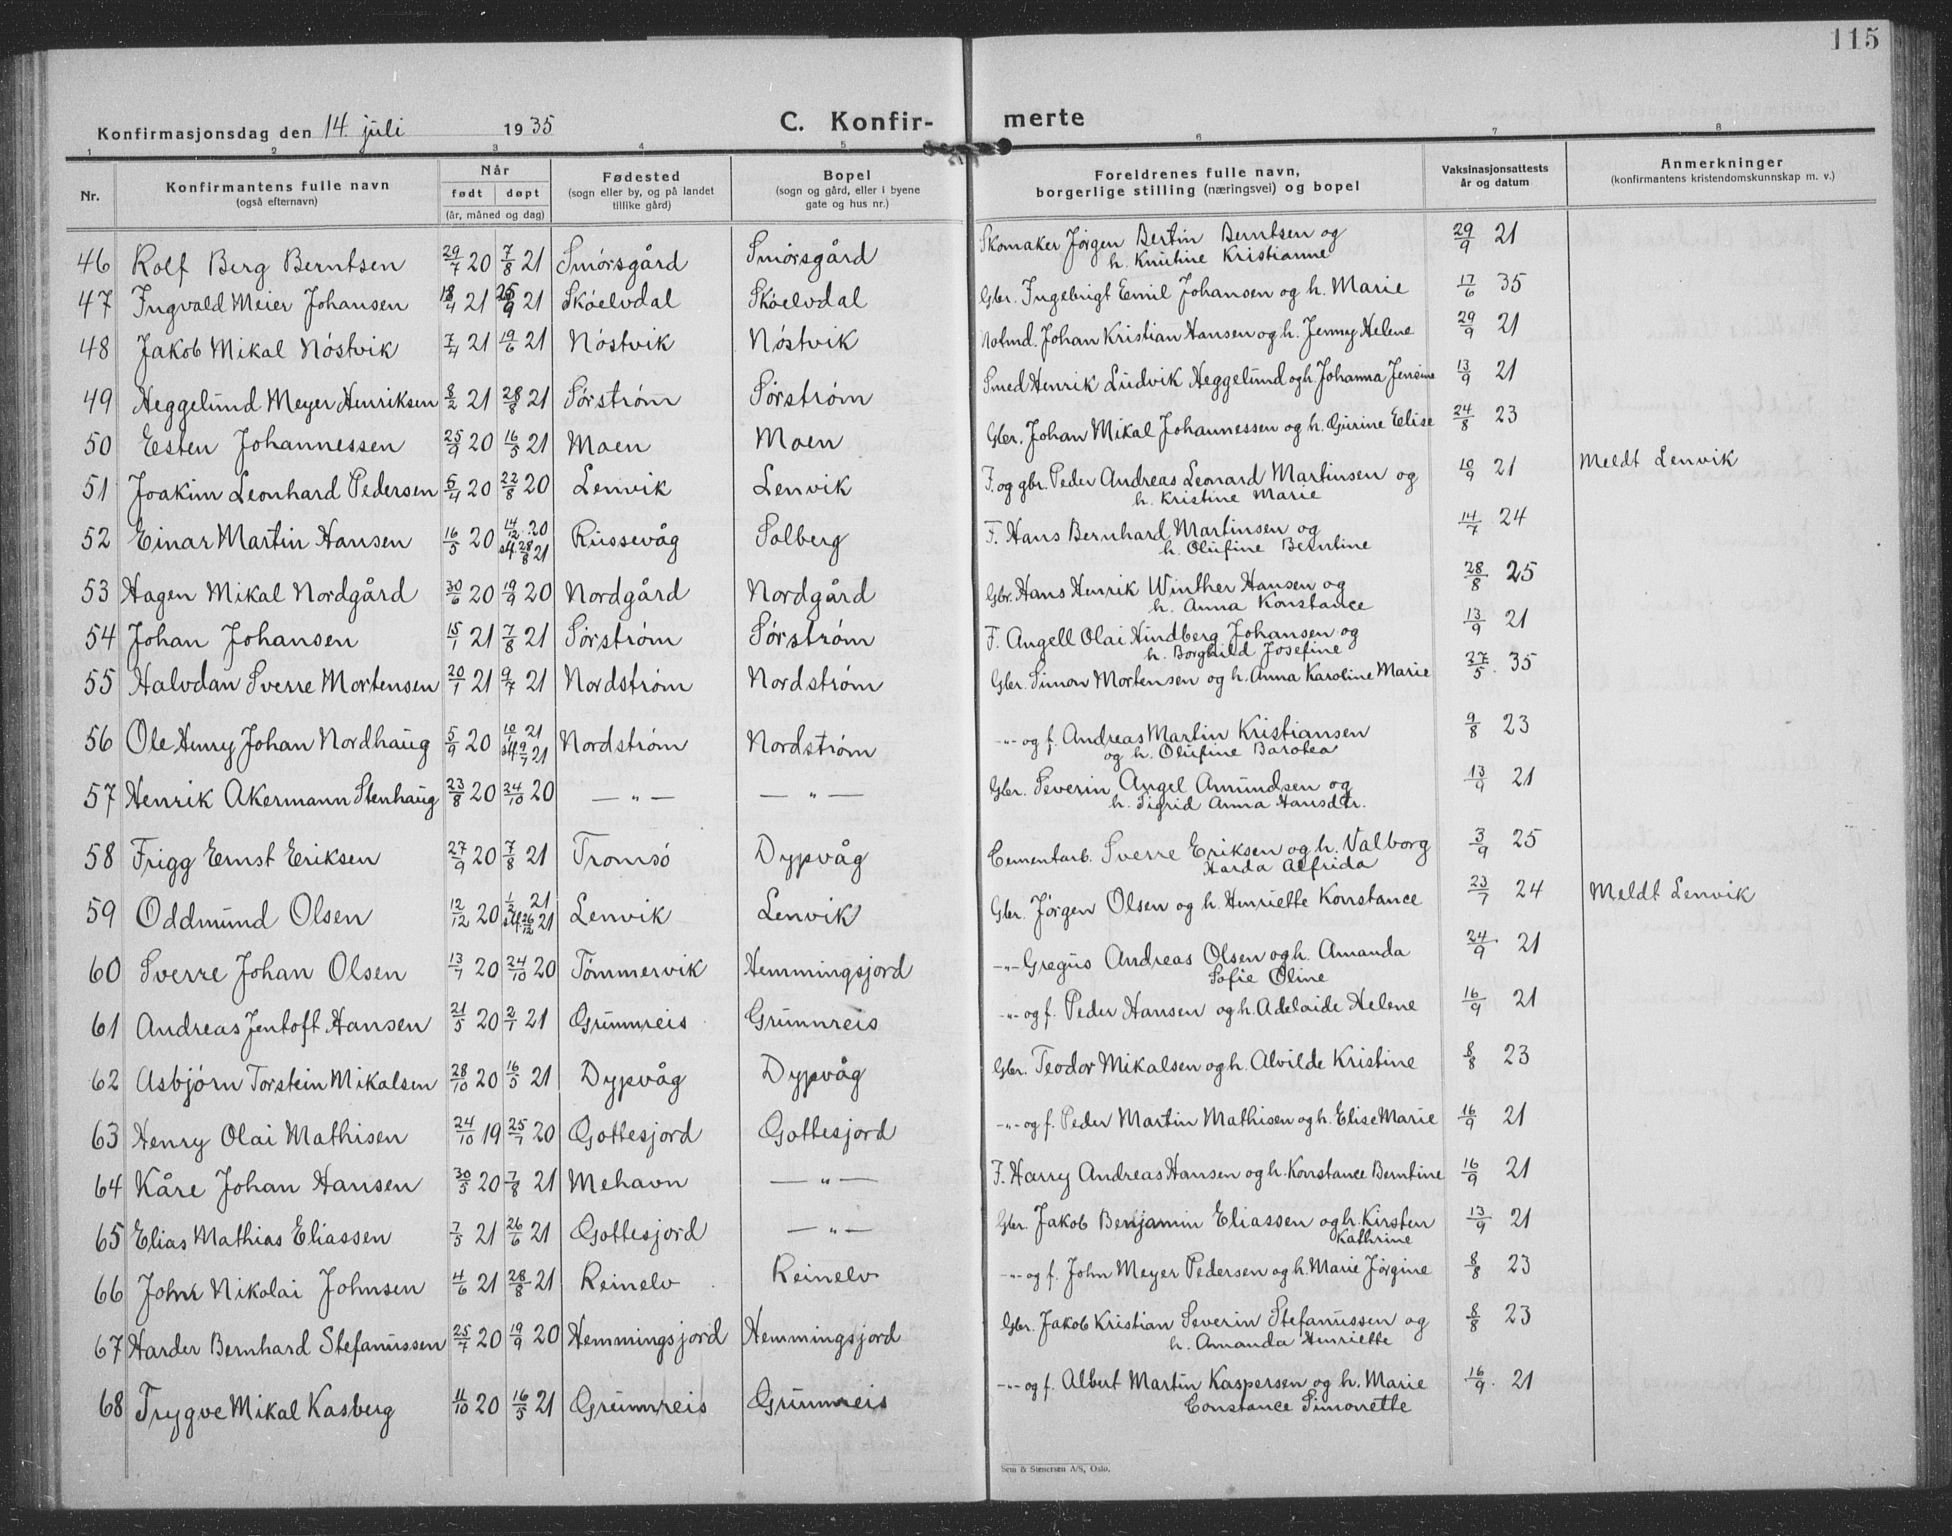 115
Konfirmasjonsdag den 14. juli 1935 C. Konfirmerte
1 2 3 4 5 6 7 8
Nr. Konfirmantens fulle navn (også efternavn) Når født døpt (år, måned og dag) Fødested (sogn eller by, og på landet tillike gård) Bopel (sogn og gård, eller i byene gate og hus nr.) Foreldrenes fulle navn, borgerlige stilling (næringsvei) og bopel Vaksinasjonsattests år og datum Anmerkninger (konfirmantens kristendomskunnskap m. v.)
46 Rolf Berg Berntsen 29/7 20 7/8 21 Smörsgård Smörsgård Skomaker Jörgen Bertin Berntsen og h. Knutine Kristianne 29/9 21
47 Ingvald Meier Johansen 18/4 21 25/9 21 Sköelvdal Sköelvdal Gbr. Ingebrigt Emil Johansen og h. Marie 17/6 35
48 Jakob Mikal Nöstvik 7/4 21 19/6 21 Nöstvik Nöstvik Notmd. Johan Kristian Hansen og h. Jenny Helene 29/9 21
49 Heggelund Meyer Henriksen 8/2 21 28/8 21 Sörström Sörström Smed Henrik Ludvik Heggelund og h. Johanna Jensine 13/9 21
50 Esten Johannessen 25/9 20 16/5 21 Moen Moen Gbr. Johan Mikal Johannessen og h. Gurine Elise 24/8 23
51 Joakim Leonhard Pedersen 5/4 20 22/8 20 Lenvik Lenvik F. og gbr. Peder Andreas Leonard Martinsen og h. Kristine Marie 10/9 21 Meldt Lenvik
52 Einar Martin Hansen 16/5 20 14/12 20 st. 28/8 21 Russevåg Solberg F. Hans Bernhard Martinsen og h. Olufine Berntine 14/7 24
53 Hagen Mikal Nordgård 30/6 20 19/9 20 Nordgård Nordgård Gbr. Hans Henrik Winther Hansen og h. Anna Konstance 28/8 25
54 Johan Johansen 15/1 21 7/8 21 Sörström Sörström F. Angell Olai Hindberg Johansen og h. Borghild Josefine 13/9 21
55 Halvdan Sverre Mortensen 20/1 21 9/7 21 Nordström Nordström Gbr. Simon Mortensen og h. Anna Karoline Marie 27/5. 35
56 Ole Henry Johan Nordhaug 5/9 20 10/1 21 st. 9/7 21 Nordström Nordström -"- og f. Andreas Martin Kristiansen og h. Olufine Barotea 9/8 23
57 Henrik Akermann Stenhaug 23/8 20 24/10 20 — " — — " — Gbr. Severin Angel Amundsen og h. Sigrid Anna Hansdtr. 13/9 21
58 Frigg Ernst Eriksen 27/9 20 7/8 21 Tromsö Dypvåg Cementarb. Sverre Eriksen og h. Valborg Harda Alfrida 3/9 25
59 Oddmund Olsen 12/12 20 1/2 21 st. 26/12 21 Lenvik Lenvik Gbr. Jörgen Olsen og h. Henriette Konstance 23/7 24 Meldt Lenvik
60 Sverre Johan Olsen 13/7 20 24/10 20 Tömmervik Hemmingsjord -"- Gregus Andreas Olsen og h. Amanda Sofie Oline 24/9. 21
61 Andreas Jentoft Hansen 21/5 20 2/1 21 Grunnreis Grunnreis -"- og f. Peder Hansen og h. Adelaide Helene 16/9 21
62 Asbjörn Torstein Mikalsen 28/10 20 16/5 21 Dypvåg Dypvåg Gbr. Teodor Mikalsen og h. Alvilde Kristine 8/8 23
63 Henry Olai Mathisen 24/10 19 25/7 20 Gottesjord Gottesjord -"- og f. Peder Martin Mathisen og h. Elise Marie 16/9 21
64 Kåre Johan Hansen 30/5 20 7/8 21 Mehavn — " — F. Harry Andreas Hansen og h. Konstance Berntine 16/9 21
65 Elias Mathias Eliassen 7/5 21 26/6 21 Gottesjord — " — Gbr. Jakob Benjamin Eliassen og h. Kirsten Kathrine 13/9. 21
66 John Nikolai Johnsen 4/6 21 28/8 21 Reinelv Reinelv -"- og f. John Meyer Pedersen og h. Marie Jörgine 8/8 23
67 Harder Bernhard Stefanussen 25/7 20 19/9 20 Hemmingsjord Hemmingsjord Gbr. Jakob Kristian Severin Stefanussen og h. Amanda Henriette 8/8 23
68 Trygve Mikal Kasberg 11/10 20 16/5 21 Grunnreis Grunnreis -"- og f. Albert Martin Kaspersen og h. Marie Constance Simonette 16/9. 21
Sem & Stenersen A/S, Oslo.